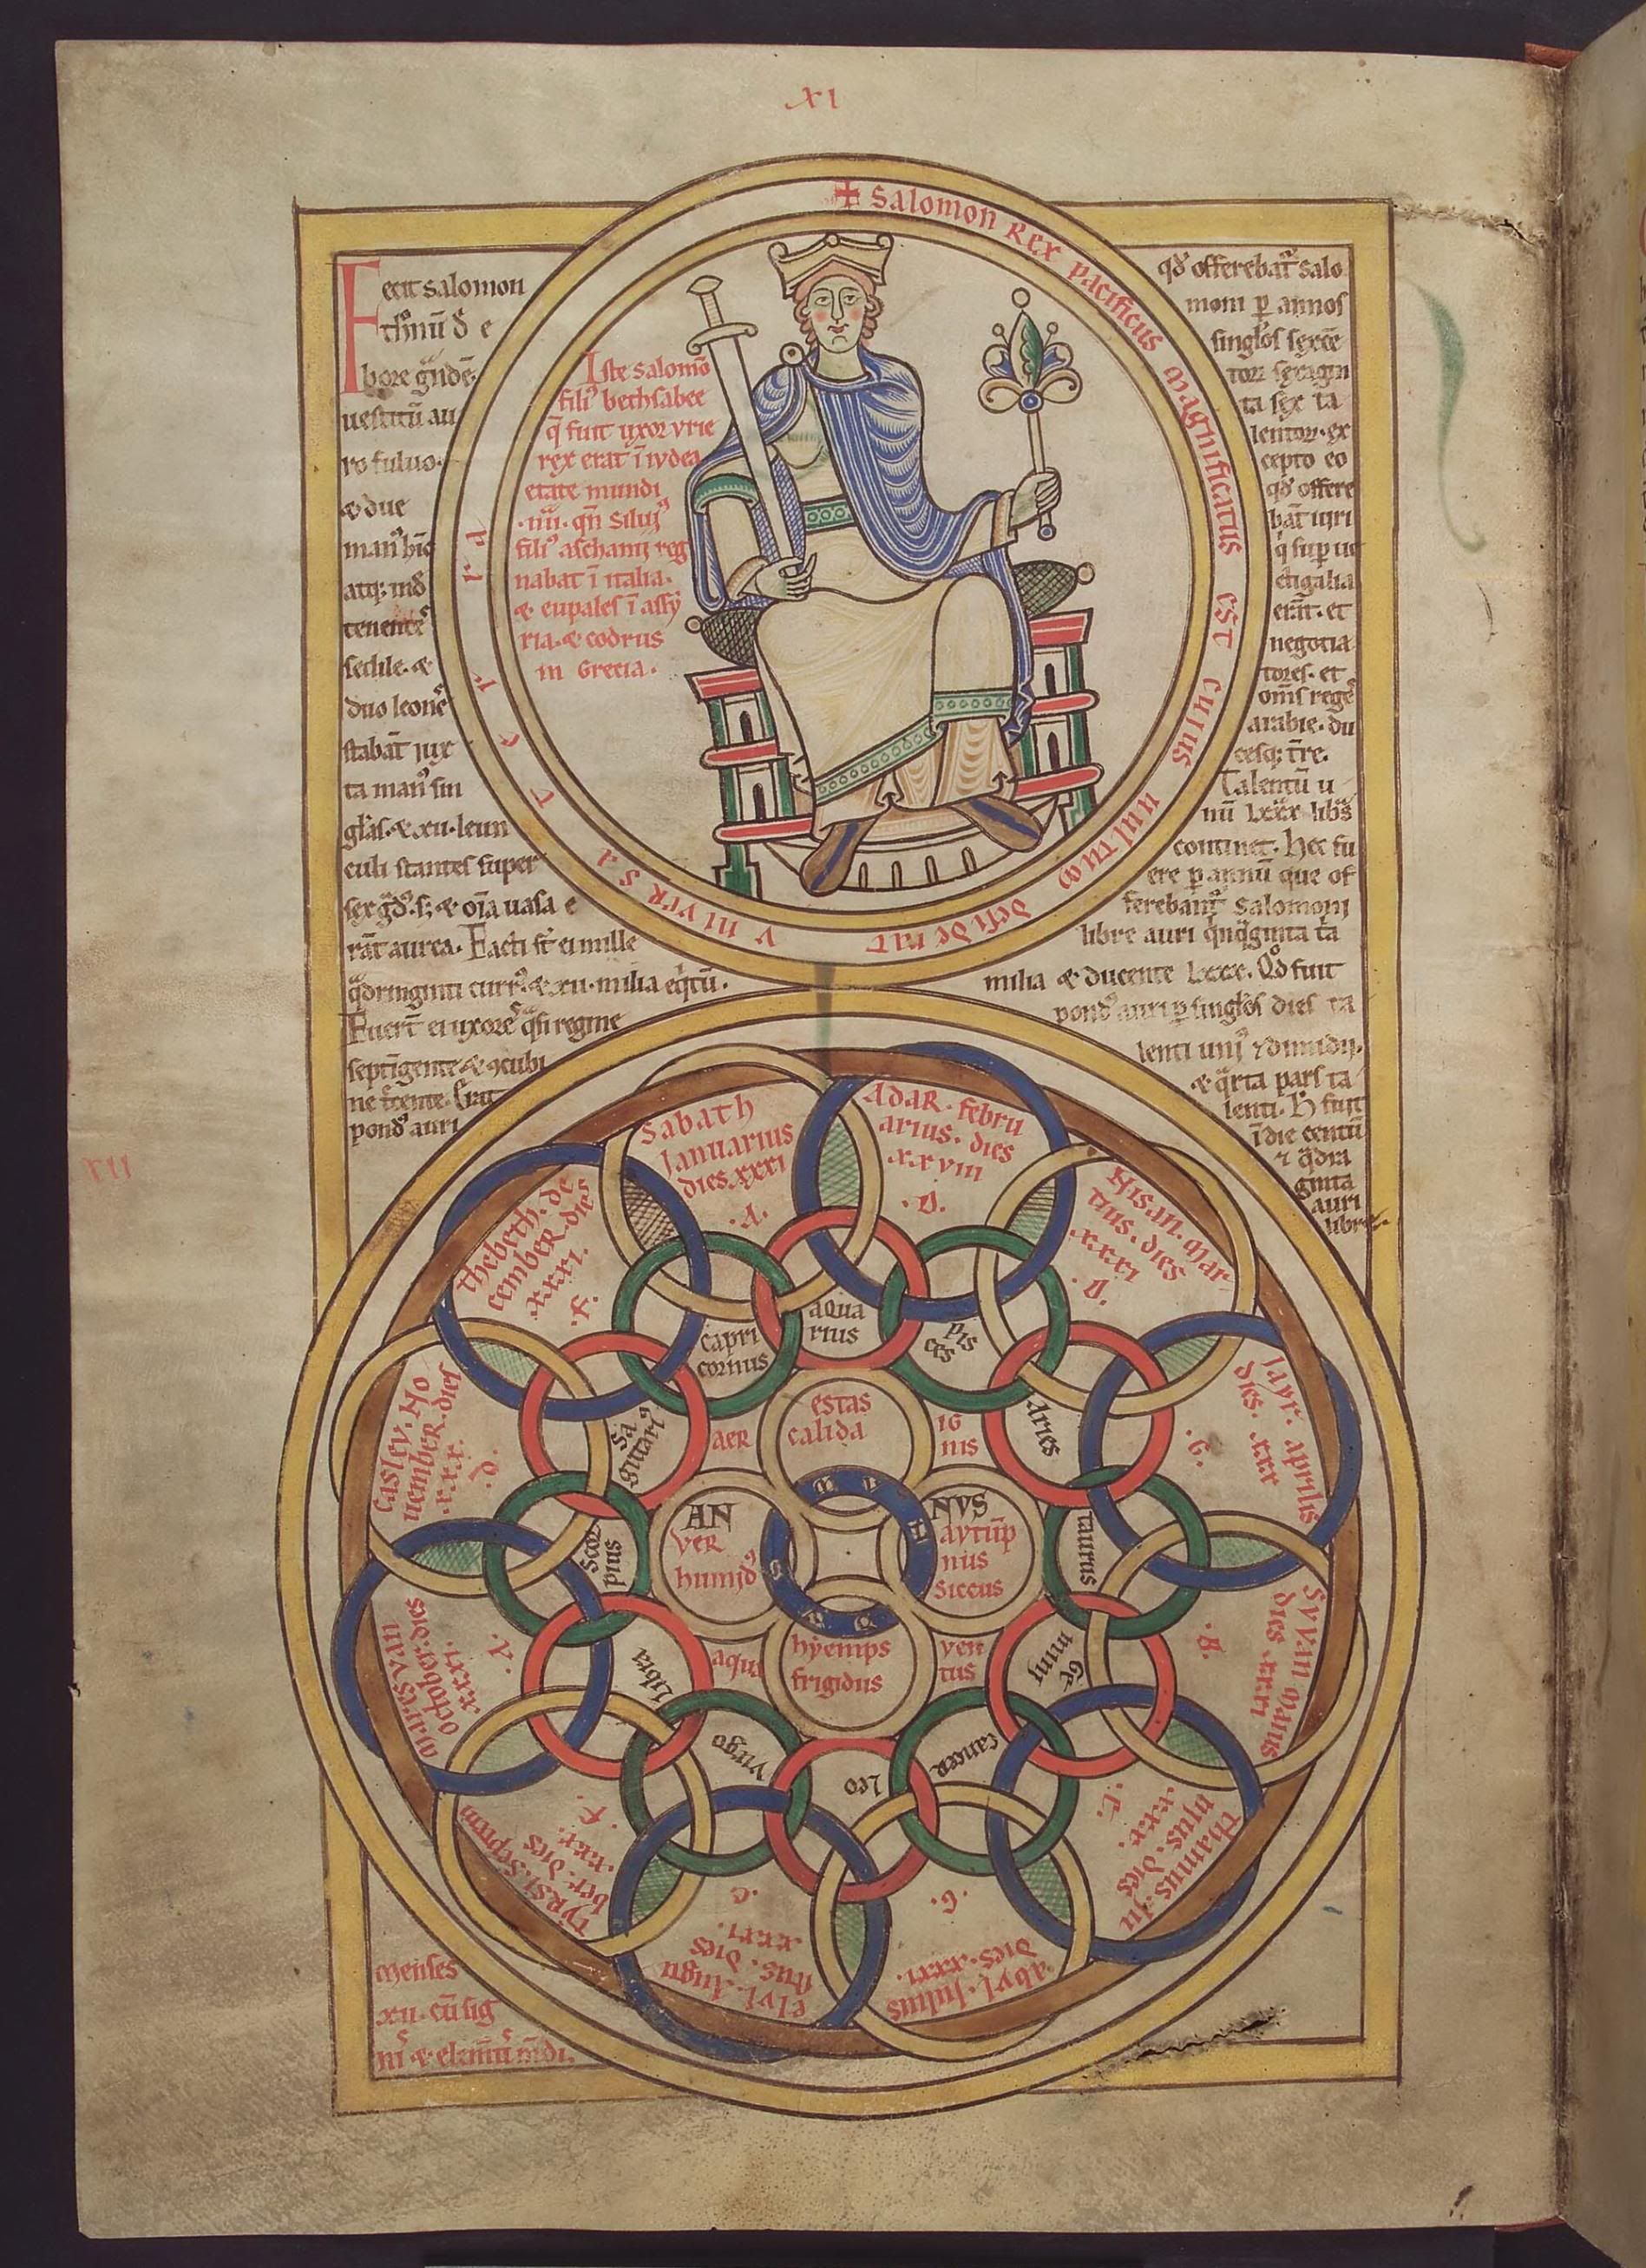 XI
✠ Salomon Rex pacificus magnificatus est cuius uultum desiderat vniversa terra
Fecit salomon
thꝛonū d̄ e
boꝛe gͣndē
uestitū au
ro fuluo.
⁊ due
manꝰ hīc
atq; īnd
tenentēs
sedile. ⁊
duo leonēs
stabāt iux
ta manꝰ sin
gl̄as. ⁊ xii. leun
culi stantes super
sex gͣdꝰ. ⁊ oīa uasa e
rāt aurea. Facti st̄ ei mille
qͣdringinti currꝰ. ⁊ xii. milia eqͥtū.
Fuerūt ei uxoreˢ qͣsi regine
septīgente ⁊ ꝯcubi
ne tͥcente. Erat
pondꝰ auri
Iste salomō
filiꝰ bethsabee
q̄ fuit uxor vrie
rex erat ī iudea
etate mundi
.iiii. qn̄ siluiꝰ
filiꝰ aschanii reg
nabat ī italia.
⁊ eupales ī assy
ria. ⁊ codrus
in Grecia.
qd̓ offerebat̓ salo
moni ꝑ annos
singlōs sexcē
toꝝ sexagin
ta sex ta
lentoꝝ. ex
cepto eo
qd̓ offere
bāt uiri
q̇ suꝑ ue
ctigalia
erāt. et
negotia
tores. et
om̄s regeˢ
arabie. du
cesq; t̄re.
Talentū u
nū lxxx libͣs
continet. hec fu
ere ꝑ annū que of
ferebant̓ Salomoni
libre auri qͥnqͣginta tͥa
milia ⁊ ducente lxxx. Qd̓ fuit
pondꝰ auri ꝑ singlōs dies ta
lenti uniꝰ ⁊ dimidii.
⁊ qͣrta pars ta
lenti. H̓ fuit
ī die centū
⁊ qͣdra
ginta
auri
libre.
XII
Sabath
Ianuarius
dies xxxi
.A.
Adar. febru
arius. dies
xxviii
.D.
Nisan. Mar
tius. dies
xxxi
.D.
Iayr. aprilis
dies. xxx
.G.
Syvan Maius
dies xxxi
.B.
Thamus. Iu
nius. dies
xxx.
.E.
abyl. Iulius
dies. xxxi.
.G.
elvl. Augu
stus. dies
xxxi.
.C.
tyRSI. Septem
ber. dies
xxx.
.F.
Maresvan
october. dies
xxxi.
.A.
Casley. No
uember. dies
xxx.
.D.
Thebeth. de
cember. dies
xxxi.
.F.
capri
cornus
aqua
rius
pis
ces
Aries
taurus
Ge
mini
cancer
Leo
virgo
Libra
scor
pius
Sa
gittariꝰ
estas
calida
AER
IG
NIS
AN
VER
humidꝰ
NVS
autūp
nus
siccus
hyemps
frigidus
aqua
ven
tus
Menses
xii. cū sig
nīs ⁊ elemtīs mūdi.